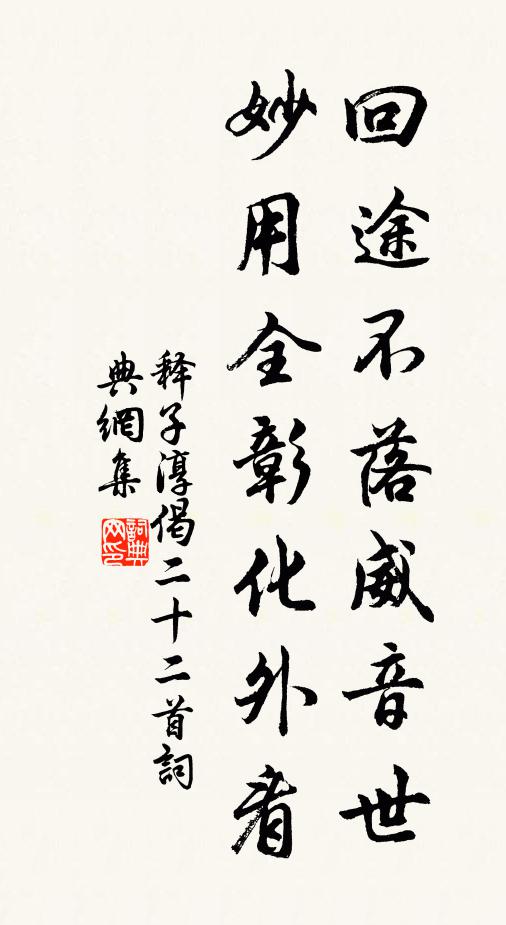 回途不落威音世
妙用全彰化外看
释子淳偈二十二首詞
典網集
詞典
网印